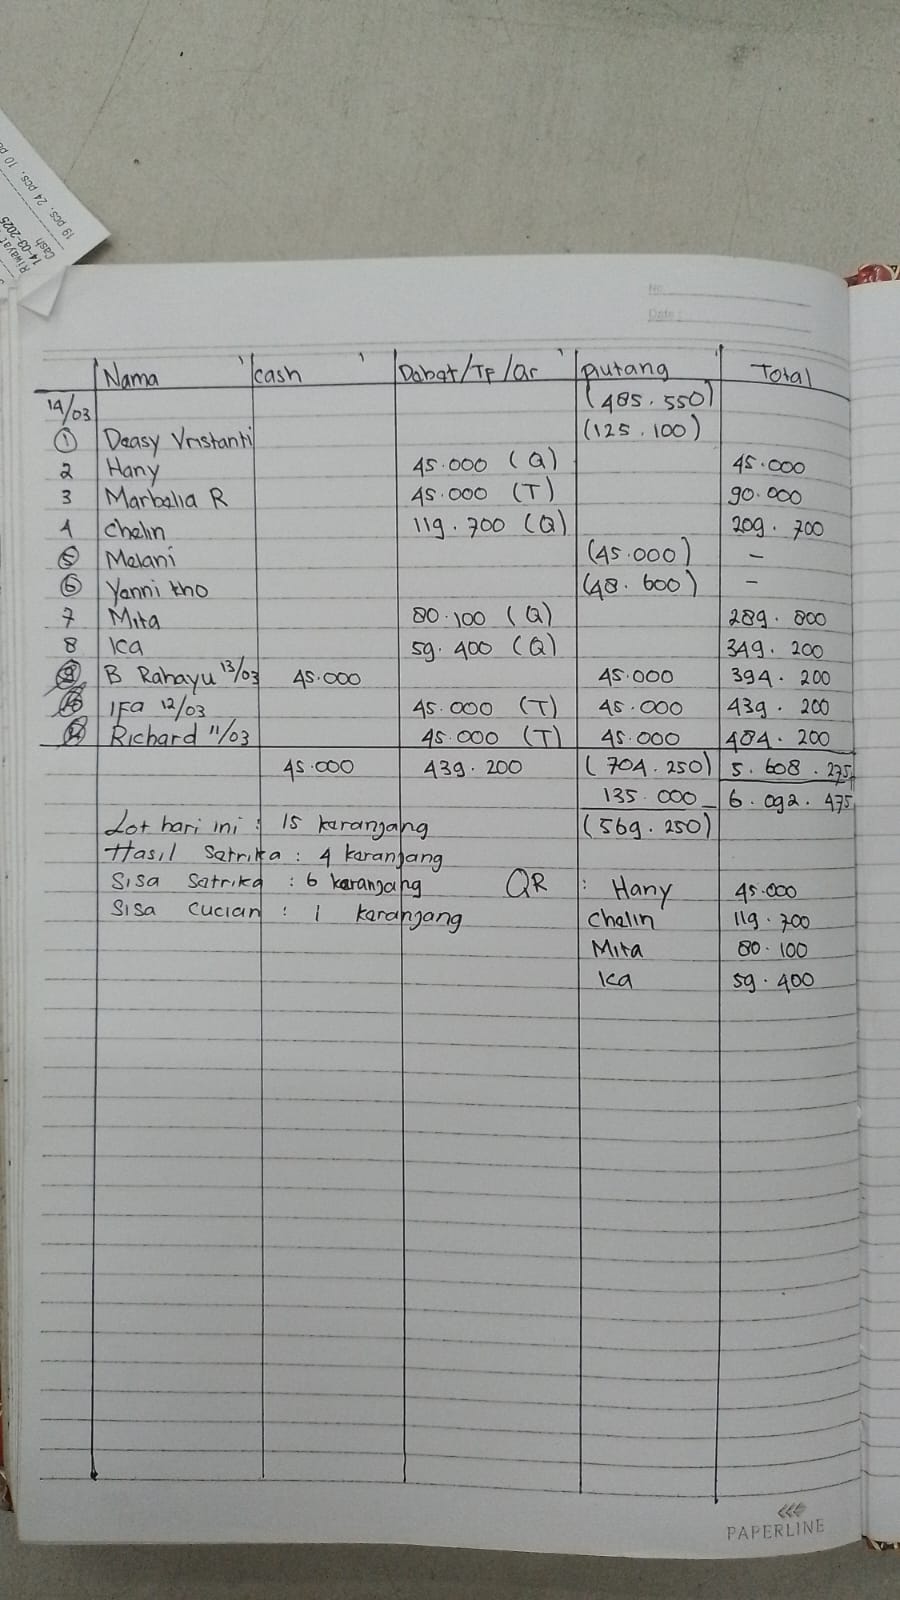 19 pcs, 24 pcs, 10
Cash
14-03-2025
Riwayat
No.
Date :
Nama cash Dabat/TF/Qr Piutang Total
14/03 (485.550)
1 Deasy Vristanti (125.100)
2 Hany 45.000 (Q) 45.000
3 Marbelia R 45.000 (T) 90.000
4 Chelin 119.700 (Q) 209.700
5 Melani (45.000) -
6 Yenni kho (48.600) -
7 Mita 80.100 (Q) 289.800
8 Ika 59.400 (Q) 349.200
B Rahayu 13/03 45.000 45.000 394.200
IFa 12/03 45.000 (T) 45.000 439.200
Richard 11/03 45.000 (T) 45.000 484.200
45.000 439.200 (704.250) 5.608.275
135.000 6.092.475
Lot hari ini : 15 keranjang (569.250)
Hasil Setrika : 4 keranjang
Sisa Setrika : 6 keranjang QR : Hany 45.000
Sisa Cucian : 1 keranjang Chelin 119.700
Mita 80.100
Ika 59.400
PAPERLINE